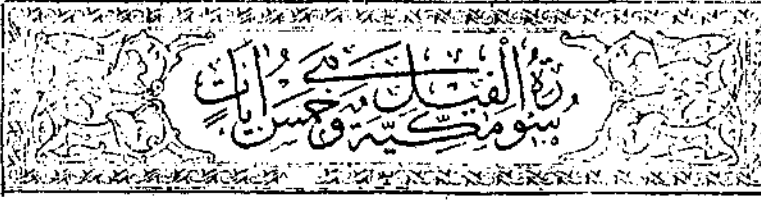 سُورَةُ الْفِيلِ مَكِّيَّةٌ وَهِيَ خَمْسُ آيَاتٍ